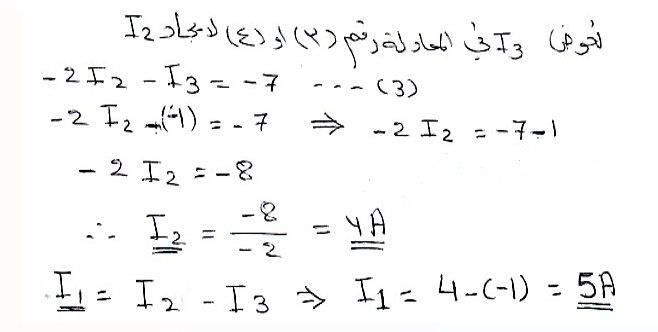 نعوض I3 في المعادلة رقم (٣) او (٤) لايجاد I2
-2I2 - I3 = -7 --- (3)
-2 I2 -(-1) = -7 ⇒ -2 I2 = -7-1
-2 I2 = -8
∴ I2 = -8/-2 = 4A
I1 = I2 - I3 ⇒ I1 = 4-(-1) = 5A